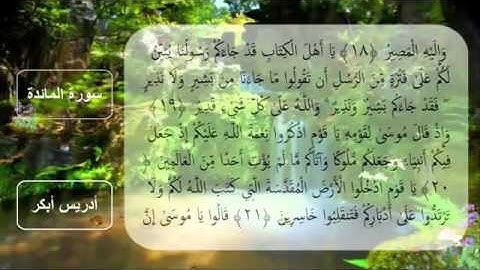 وَإِلَيْهِ الْمَصِيرُ ﴿١٨﴾ يَا أَهْلَ الْكِتَابِ قَدْ جَاءَكُمْ رَسُولُنَا يُبَيِّنُ
لَكُمْ عَلَى فَتْرَةٍ مِّنَ الرُّسُلِ أَن تَقُولُوا مَا جَاءَنَا مِن بَشِيرٍ وَلَا نَذِيرٍ
فَقَدْ جَاءَكُم بَشِيرٌ وَنَذِيرٌ وَاللَّهُ عَلَى كُلِّ شَيْءٍ قَدِيرٌ ﴿١٩﴾
وَإِذْ قَالَ مُوسَى لِقَوْمِهِ يَا قَوْمِ اذْكُرُوا نِعْمَةَ اللَّهِ عَلَيْكُمْ إِذْ جَعَلَ
فِيكُمْ أَنبِيَاءَ وَجَعَلَكُم مُّلُوكًا وَآتَاكُم مَّا لَمْ يُؤْتِ أَحَدًا مِّنَ الْعَالَمِينَ ﴿
٢٠﴾ يَا قَوْمِ ادْخُلُوا الْأَرْضَ الْمُقَدَّسَةَ الَّتِي كَتَبَ اللَّهُ لَكُمْ وَلَا
تَرْتَدُّوا عَلَى أَدْبَارِكُمْ فَتَنقَلِبُوا خَاسِرِينَ ﴿٢١﴾ قَالُوا يَا مُوسَى إِنَّ
سورة المائدة
أدريس أبكر